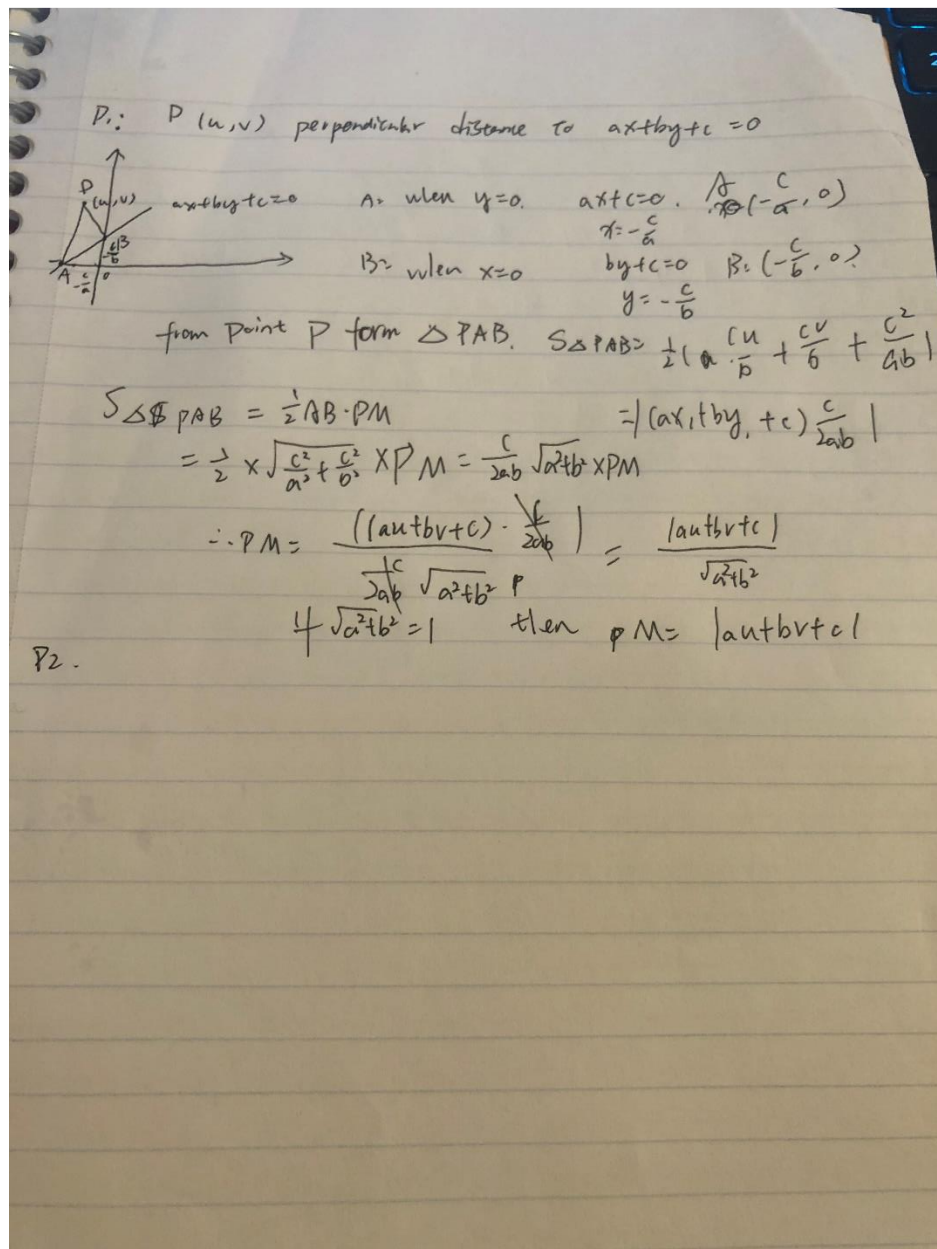 P1: P (u,v) perpendicular distance to ax+by+c=0
P
(u,v) ax+by+c=0 A: when y=0. ax+c=0. A (-c/a, 0)
x=-c/a
B
-c/b
A -c/a 0 B: when x=0 by+c=0 B: (-c/b, 0)
y=-c/b
from point P form △PAB. S△PAB= 1/2| cu/b + cv/b + c²/ab |
S△PAB = 1/2 AB·PM =|(ax,+by,+c) c/2ab|
= 1/2 × √(c²/a² + c²/b²) × PM = c/2ab √(a²+b²) × PM
∴ PM = |(au+bv+c)· c/2ab| / (c/2ab √(a²+b²)) = |au+bv+c| / √(a²+b²)
if √(a²+b²) = 1 then PM= |au+bv+c|
P2.